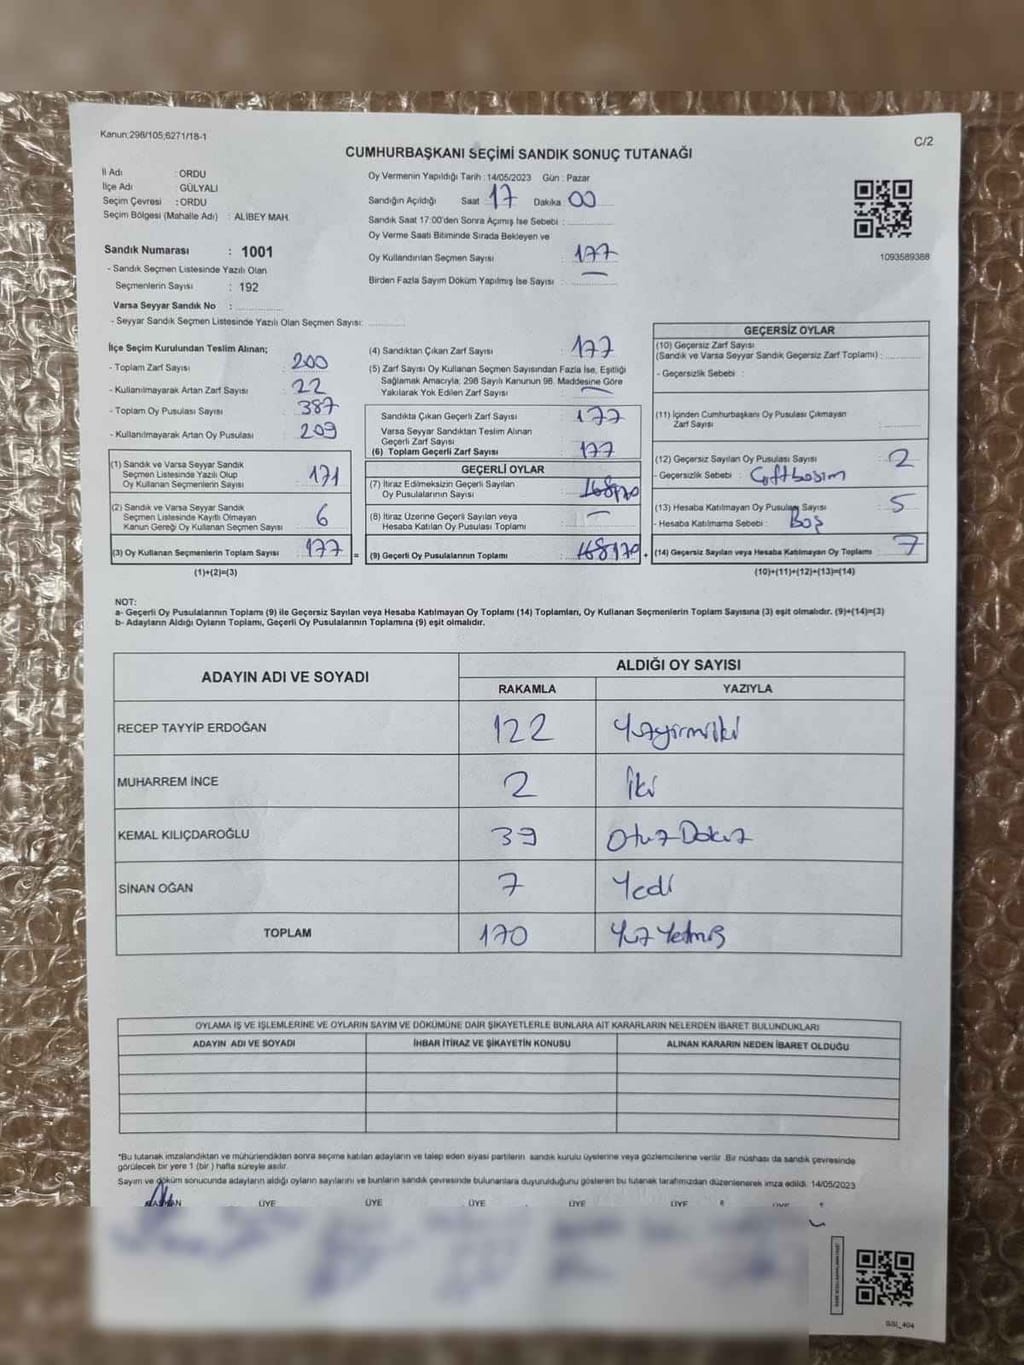 Kanun;298/105;6271/18-1
C/2
CUMHURBAŞKANI SEÇİMİ SANDIK SONUÇ TUTANAĞI
İl Adı : ORDU
İlçe Adı : GÜLYALI
Seçim Çevresi : ORDU
Seçim Bölgesi (Mahalle Adı) : ALİBEY MAH.
Sandık Numarası : 1001
- Sandık Seçmen Listesinde Yazılı Olan
Seçmenlerin Sayısı : 192
Varsa Seyyar Sandık No :
- Seyyar Sandık Seçmen Listesinde Yazılı Olan Seçmen Sayısı:
Oy Vermenin Yapıldığı Tarih : 14/05/2023 Gün : Pazar
Sandığın Açıldığı Saat : 17 Dakika 00
Sandık Saat 17:00'den Sonra Açımış İse Sebebi :
Oy Verme Saati Bitiminde Sırada Bekleyen ve
Oy Kullandırılan Seçmen Sayısı : 177
Birden Fazla Sayım Döküm Yapılmış İse Sayısı : —
1093589388
İlçe Seçim Kurulundan Teslim Alınan;
- Toplam Zarf Sayısı : 200
- Kullanılmayarak Artan Zarf Sayısı : 22
- Toplam Oy Pusulası Sayısı : 387
- Kullanılmayarak Artan Oy Pusulası : 209
(1) Sandık ve Varsa Seyyar Sandık
Seçmen Listesinde Yazılı Olup
Oy Kullanan Seçmenlerin Sayısı : 171
(2) Sandık ve Varsa Seyyar Sandık
Seçmen Listesinde Kayıtlı Olmayan
Kanun Gereği Oy Kullanan Seçmen Sayısı : 6
(3) Oy Kullanan Seçmenlerin Toplam Sayısı : 177
(1)+(2)=(3)
(4) Sandıktan Çıkan Zarf Sayısı : 177
(5) Zarf Sayısı Oy Kullanan Seçmen Sayısından Fazla İse, Eşitliği
Sağlamak Amacıyla; 298 Sayılı Kanunun 98. Maddesine Göre
Yakılarak Yok Edilen Zarf Sayısı : —
Sandıkta Çıkan Geçerli Zarf Sayısı : 177
Varsa Seyyar Sandıktan Teslim Alınan
Geçerli Zarf Sayısı
(6) Toplam Geçerli Zarf Sayısı : 177
GEÇERLİ OYLAR
(7) İtiraz Edilmeksizin Geçerli Sayılan
Oy Pusulalarının Sayısı : 168 170
(8) İtiraz Üzerine Geçerli Sayılan veya
Hesaba Katılan Oy Pusulası Toplamı : —
= (9) Geçerli Oy Pusulalarının Toplamı : 168 170
GEÇERSİZ OYLAR
(10) Geçersiz Zarf Sayısı
(Sandık ve Varsa Seyyar Sandık Geçersiz Zarf Toplamı) :
- Geçersizlik Sebebi :
(11) İçinden Cumhurbaşkanı Oy Pusulası Çıkmayan
Zarf Sayısı :
(12) Geçersiz Sayılan Oy Pusulası Sayısı : 2
- Geçersizlik Sebebi : Çiftbasım
(13) Hesaba Katılmayan Oy Pusulası Sayısı : 5
- Hesaba Katılmama Sebebi : Boş
+ (14) Geçersiz Sayılan veya Hesaba Katılmayan Oy Toplamı : 7
(10)+(11)+(12)+(13)=(14)
NOT:
a- Geçerli Oy Pusulalarının Toplamı (9) ile Geçersiz Sayılan veya Hesaba Katılmayan Oy Toplamı (14) Toplamları, Oy Kullanan Seçmenlerin Toplam Sayısına (3) eşit olmalıdır. (9)+(14)=(3)
b- Adayların Aldığı Oyların Toplamı, Geçerli Oy Pusulalarının Toplamına (9) eşit olmalıdır.
ADAYIN ADI VE SOYADI
ALDIĞI OY SAYISI
RAKAMLA YAZIYLA
RECEP TAYYİP ERDOĞAN 122 Yüzyirmiiki
MUHARREM İNCE 2 İki
KEMAL KILIÇDAROĞLU 39 Otuz Dokuz
SİNAN OĞAN 7 Yedi
TOPLAM 170 Yüz Yetmiş
OYLAMA İŞ VE İŞLEMLERİNE VE OYLARIN SAYIM VE DÖKÜMÜNE DAİR ŞİKAYETLERLE BUNLARA AİT KARARLARIN NELERDEN İBARET BULUNDUKLARI
ADAYIN ADI VE SOYADI İHBAR İTİRAZ VE ŞİKAYETİN KONUSU ALINAN KARARIN NEDEN İBARET OLDUĞU
*Bu tutanak imzalandıktan ve mühürlendikten sonra seçime katılan adayların ve talep eden siyasi partilerin sandık kurulu üyelerine veya gözlemcilerine verilir. Bir nüshası da sandık çevresinde
görülecek bir yere 1 (bir) hafta süreyle asılır.
Sayım ve döküm sonucunda adayların aldığı oyların sayılarını ve bunların sandık çevresinde bulunanlara duyurulduğunu gösteren bu tutanak tarafımızdan düzenlenerek imza edildi. 14/05/2023
ÜYE ÜYE ÜYE ÜYE ÜYE
SSI_404